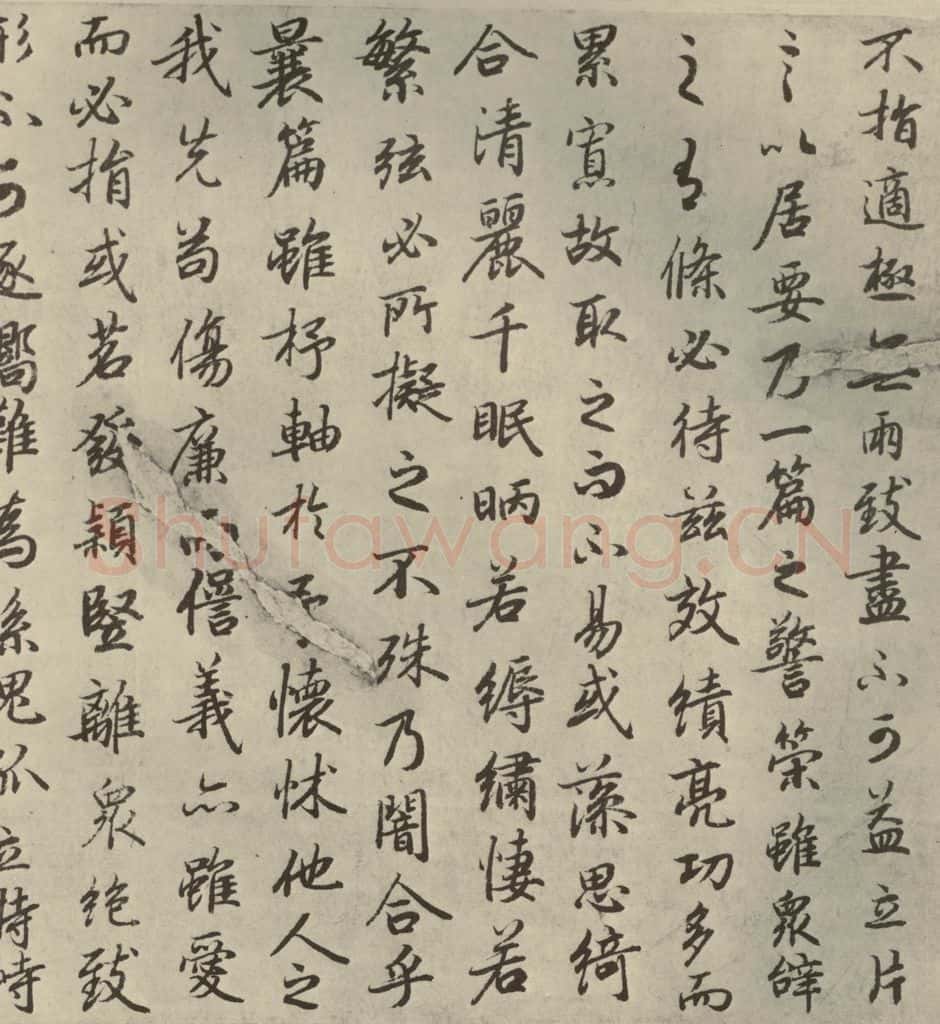 不指適極無兩致盡不可益立片
言以居要乃一篇之警策雖衆辭
之有條必待茲效績亮功多而
累寡故取足而不易或藻思綺
合清麗千眠昞若縟繡悽若
繁弦必所擬之不殊乃闇合乎
曩篇雖杼軸於予懷怵他人之
我先苟傷廉而愆義亦雖愛
而必捐或苕發穎豎離衆絕致
形不可逐響難爲係塊孤立特峙
Shufawang.CN